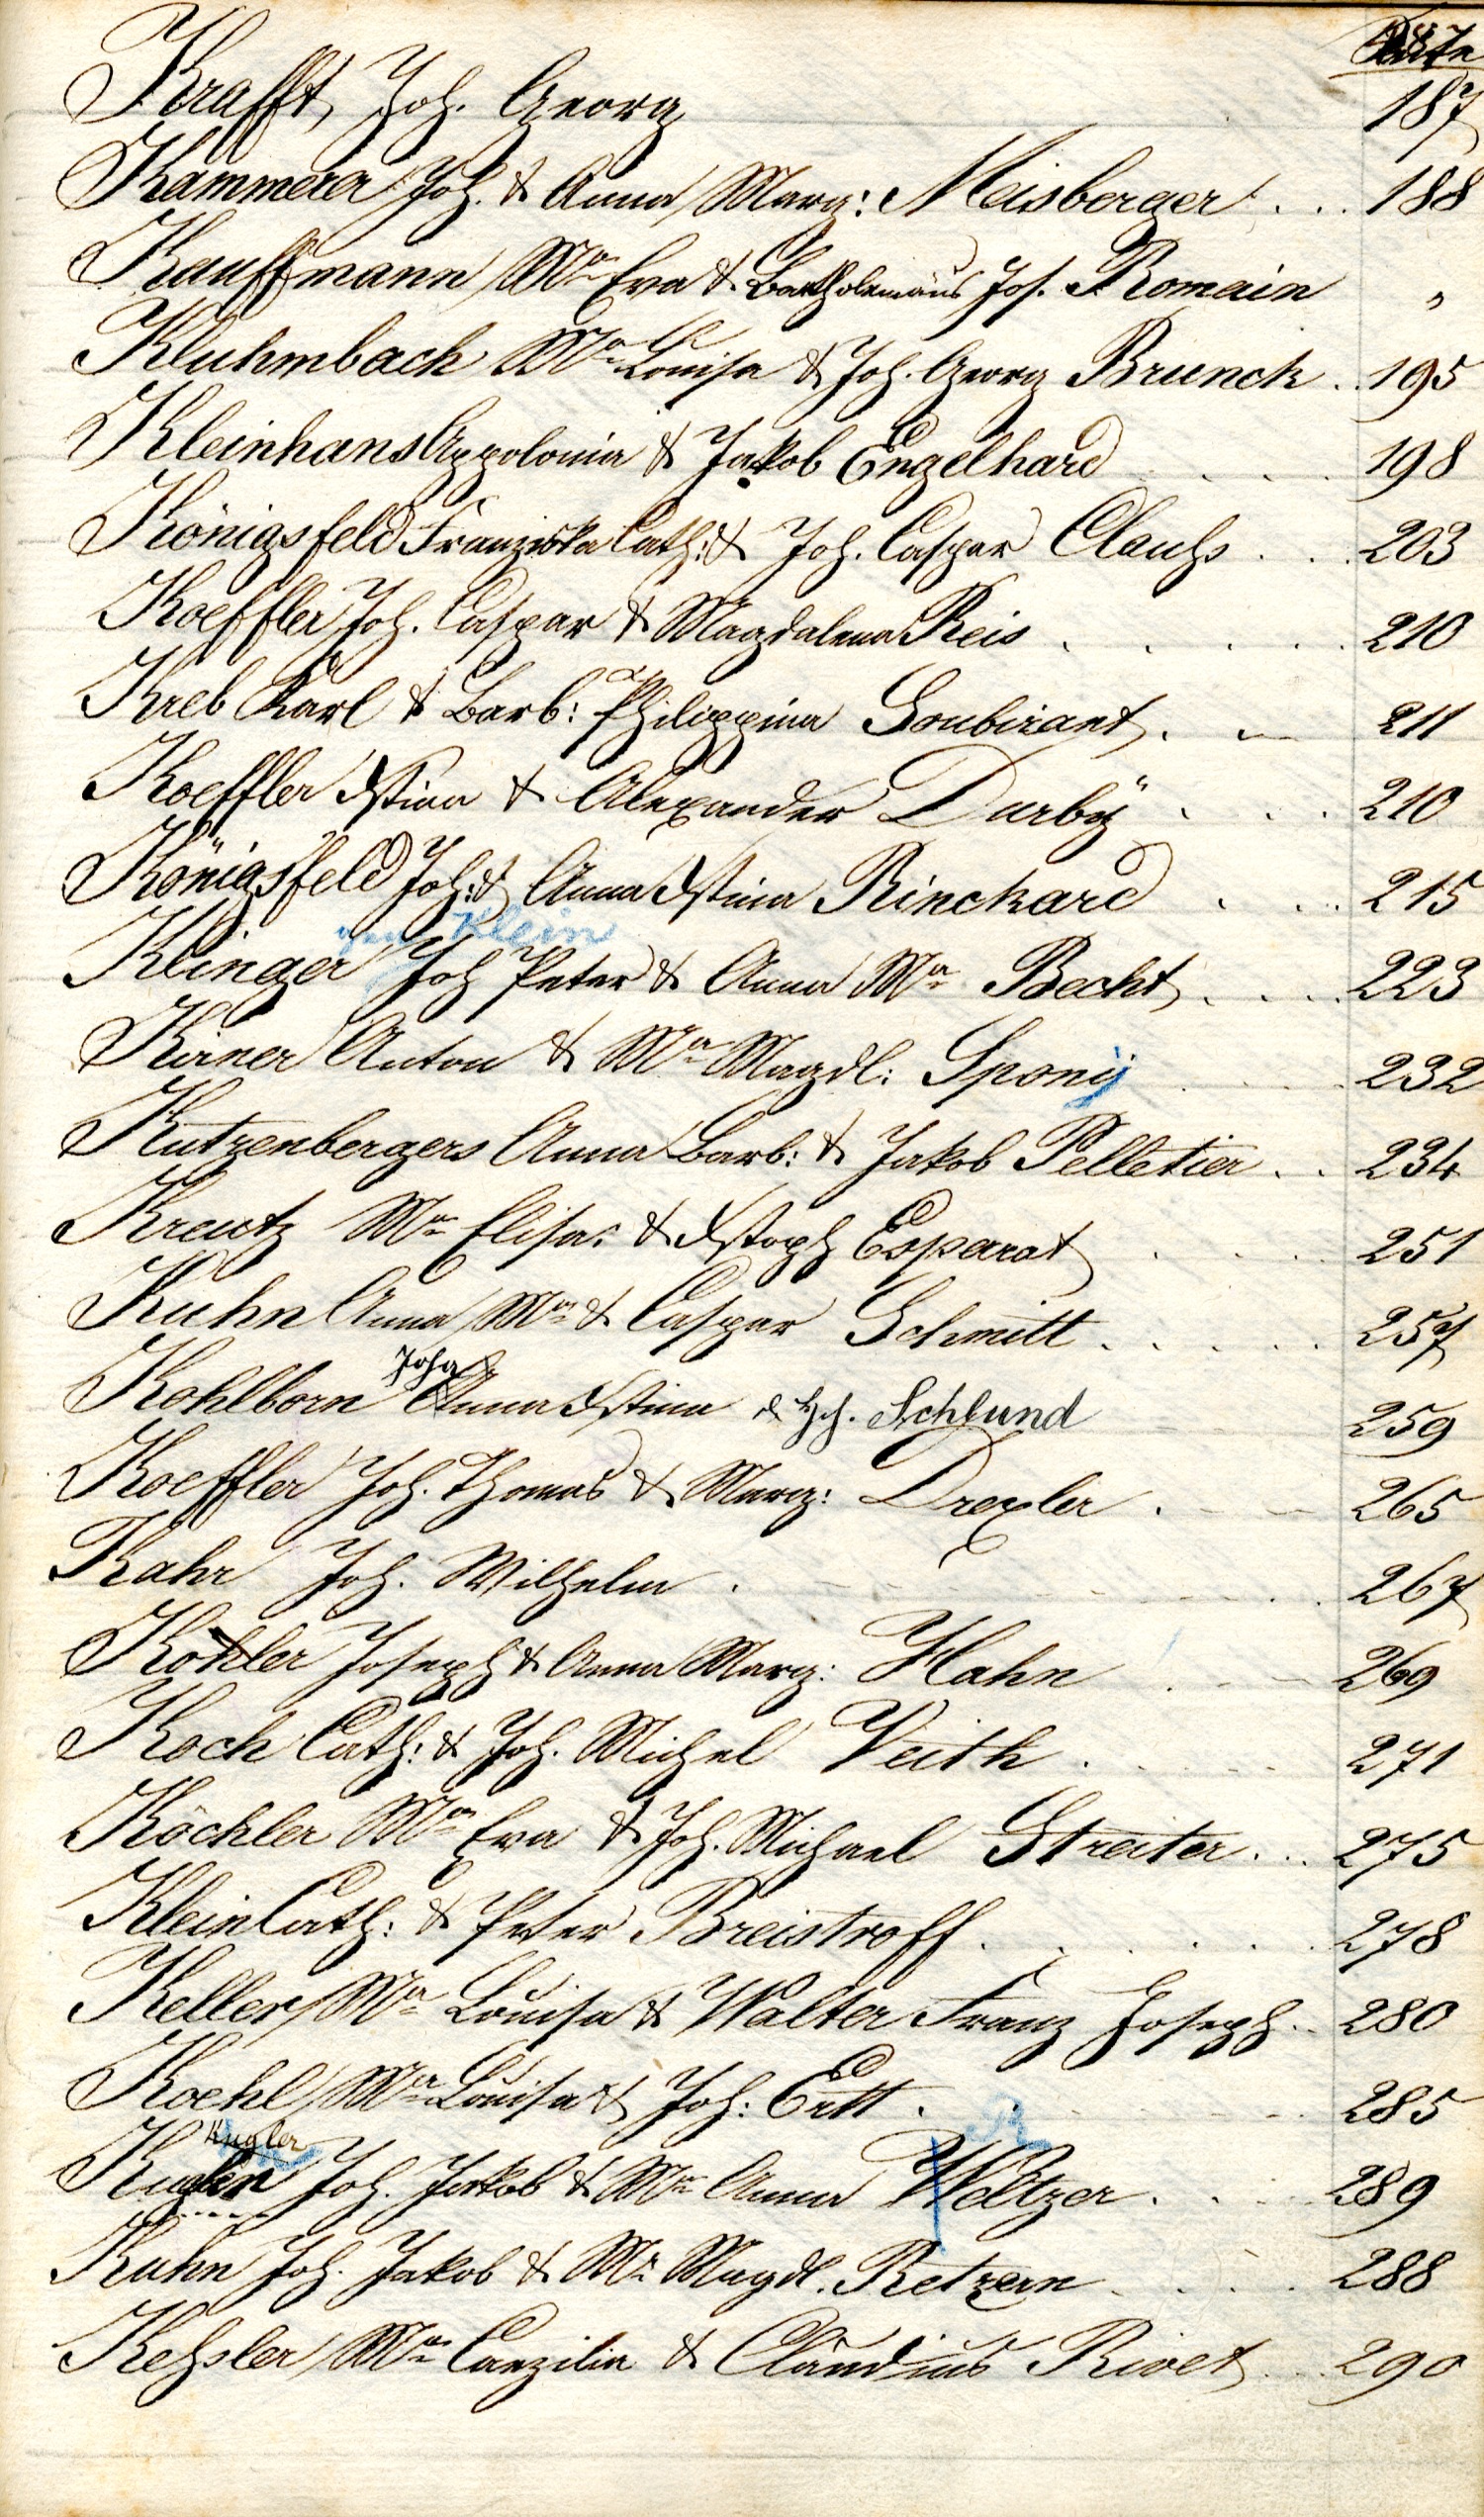 Seite
Krafft, Joh. Georg 187
Kammerer Joh. & Anna Marg: Meisberger . . . 188
Kauffmann Ma Eva & Bartholemäus Jos. Romain "
Kluhmbach Ma Louisa & Joh. Georg Brunck . . 195
Kleinhans Appolonia & Jakob Engelhard . . . 198
Königsfeld Franziska Cath: & Joh. Caspar Clauhs . . . 203
Koeffler Joh. Caspar & Magdalena Reis . . . . . 210
Kreb Karl & Barb: Philippina Soubirant . . 211
Koeffler Xstina & Alexander Darbÿ . . . 210
Königsfeld Joh: & Anna Xstina Rinckard . . . 215
Klein
Klinger Joh Peter & Anna Ma Becht . . . . 223
Kirner Anton & Ma Magdl: Sponij . . . 232
Kutzenbergers Anna Barb: & Jakob Pelletier . . 234
Kreutz Ma Elisa: & Xstoph Esparat . . . 251
Kuhn Anna Ma & Caspar Schmitt . . . . . 257
Joha
Kohlborn Anna Xstina & Hch. Schlund 259
Koeffler Joh. Thomas & Marg: Drexler . . . 265
Kahr Joh. Wilhelm . . . . 267
Kohler Joseph & Anna Marg: Hahn . . . 269
Koch Cath: & Joh. Michel Veith . . . . . 271
Köchler Ma Eva & Joh. Michael Streiter . . . 275
Klein Cath: & Peter Breistroff . . . . . . 278
Keller Ma Louisa & Walter Franz Joseph . . 280
Koehl Ma Louisa & Joh: Ertt . . . . 285
Kugler R
Kugler Joh. Jakob & Ma Anna Weltzer . . . 289
Kuhn Joh. Jakob & Ma Magdl. Retzern . . . . 288
Kehsler Ma Caezilia & Claudius Rivet . . . 290